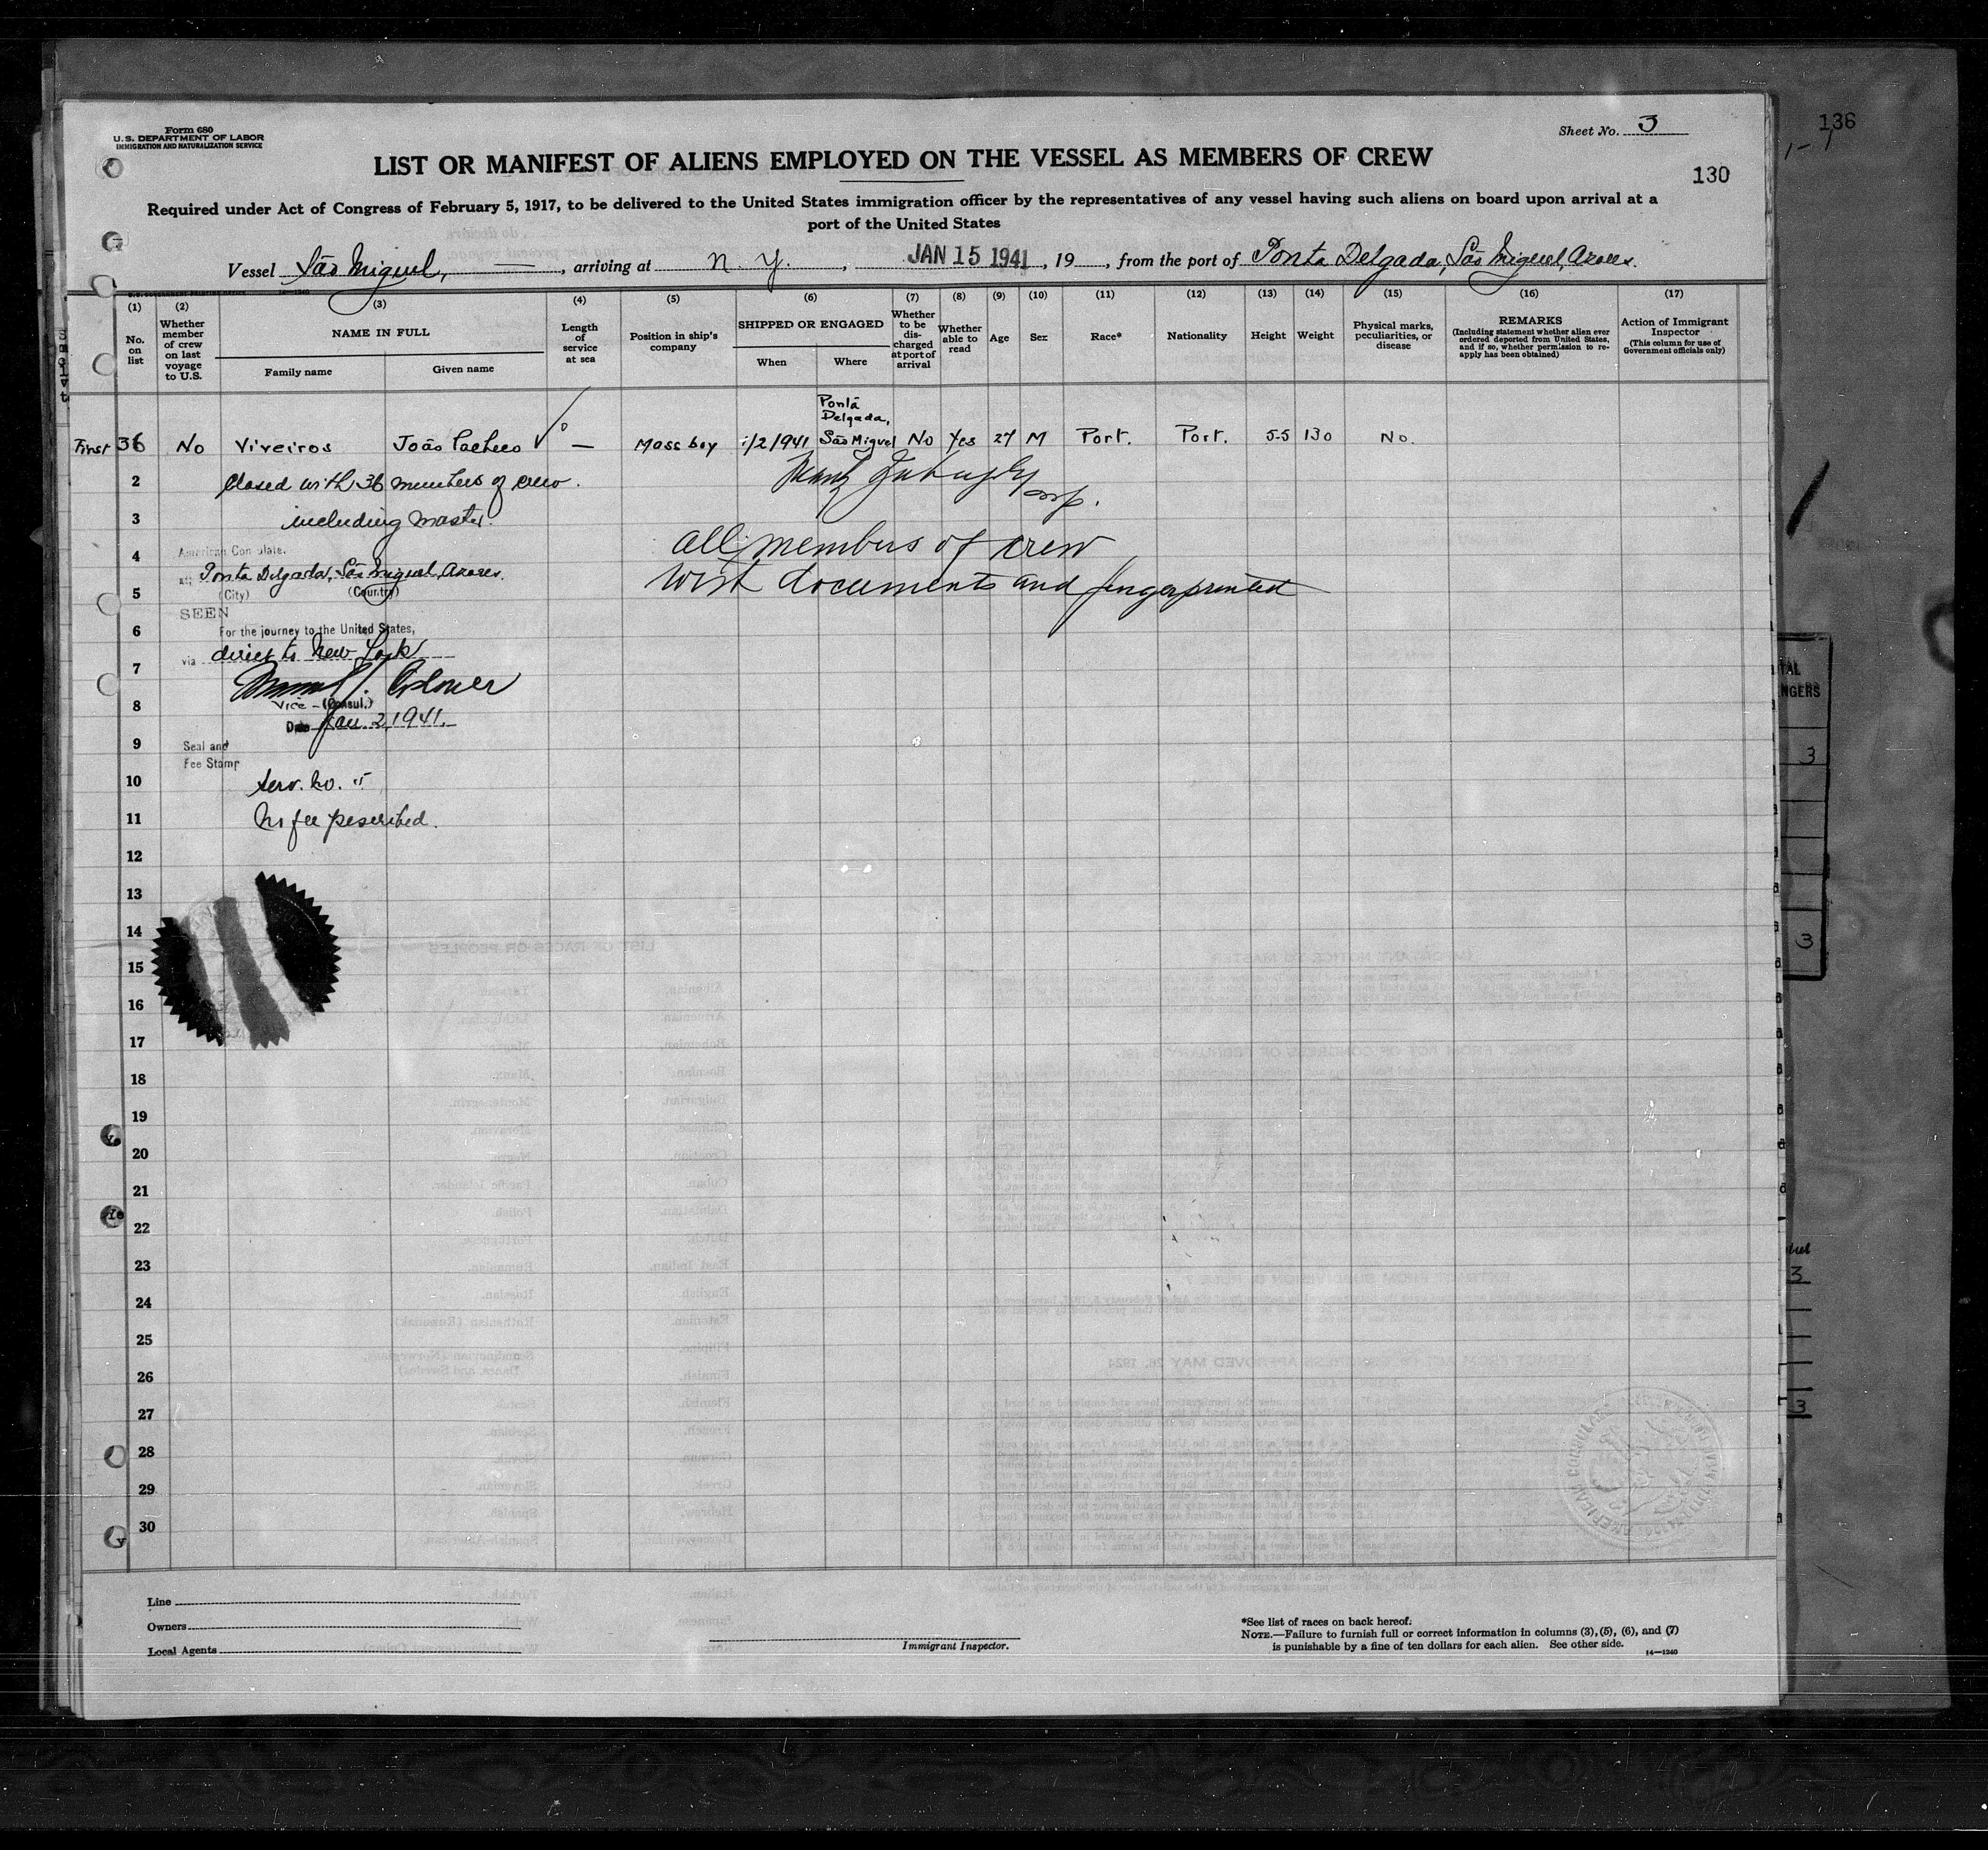 Form 680
U.S. DEPARTMENT OF LABOR
IMMIGRATION AND NATURALIZATION SERVICE
Sheet No. 3
136
LIST OR MANIFEST OF ALIENS EMPLOYED ON THE VESSEL AS MEMBERS OF CREW
130
Required under Act of Congress of February 5, 1917, to be delivered to the United States immigration officer by the representatives of any vessel having such aliens on board upon arrival at a
port of the United States
Vessel São Miguel, arriving at N. Y., JAN 15 1941, 19, from the port of Ponta Delgada, São Miguel, Azores.
(1) (2) (3) (4) (5) (6) (7) (8) (9) (10) (11) (12) (13) (14) (15) (16) (17)
No. on list
Whether member of crew on last voyage to U.S.
NAME IN FULL
Family name
Given name
Length of service at sea
Position in ship's company
SHIPPED OR ENGAGED
When
Where
Whether to be discharged at port of arrival
Whether able to read
Age
Sex
Race*
Nationality
Height
Weight
Physical marks, peculiarities, or disease
REMARKS
(Including statement whether alien ever ordered deported from United States, and if so, whether permission to reapply has been obtained)
Action of Immigrant Inspector
(This column for use of Government officials only)
First 36 No Viveiros João Pacheco — Mess boy 1/2 1941 Ponta Delgada, São Miguel No Yes 27 M Port. Port. 5-5 130 No.
2 Closed with 36 members of crew.
3 including master.
4 American Consulate.
All members of crew
at Ponta Delgada, São Miguel, Azores.
5 (City) (Country)
with documents and fingerprinted
SEEN
6 For the journey to the United States,
via direct to New York
7
8 Vice-(Consul.)
Date Jan. 2, 1941.
9 Seal and
Fee Stamp
10 Serv. No. 5
11 No fee prescribed.
12
13
14
15
16
17
18
19
20
21
22
23
24
25
26
27
28
29
30
Line
Owners
Local Agents
Immigrant Inspector.
*See list of races on back hereof.
NOTE.—Failure to furnish full or correct information in columns (3), (5), (6), and (7)
is punishable by a fine of ten dollars for each alien. See other side.
14—1240